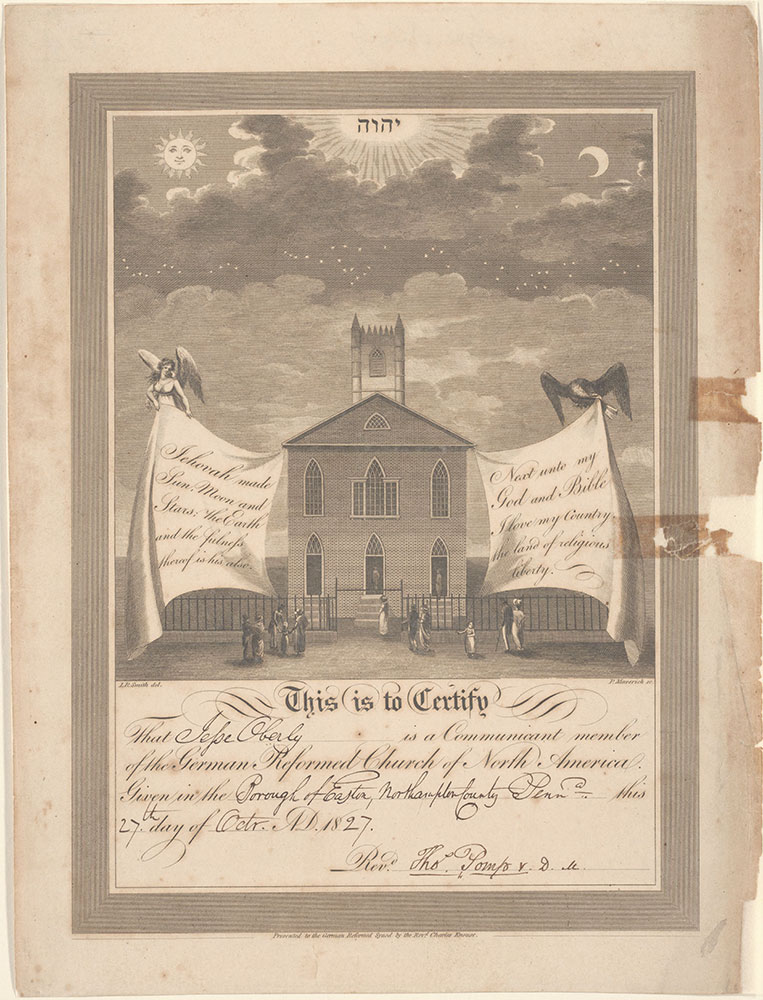 יהוה
Jehovah made
Sun, Moon and
Stars; the Earth
and the fulness
thereof is his also.
Next unto my
God and Bible
I love my Country
the land of religious
liberty.
I.R. Smith del.
P. Maverick sc.
This is to Certify
That Jesse Oberly is a Communicant member
of the German Reformed Church of North America.
Given in the Borough of Easton, Northampton County Penna. this
27th day of Octr. A.D. 1827.
Revd. Thos. Pomp V. D. M.
Presented to the German Reformed Synod by the Revd. Charles Knouse.